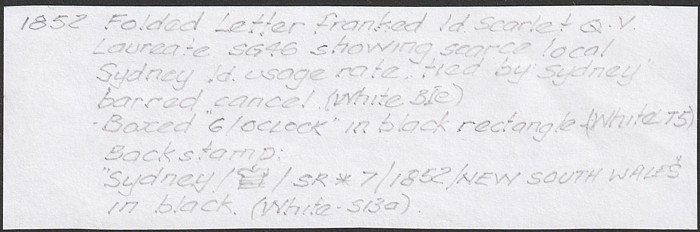 1852 Folded Letter franked 1d. Scarlet Q.V.
Laureate SG46 showing scarce local
Sydney 1d. usage rate, tied by "Sydney"
barred cancel. (White B1c)
-Boxed "6/OCLOCK" in black rectangle-(White T5)
Backstamp:
"Sydney / / SR * 7/1852/NEW SOUTH WALES"
in black. (White-S13a).